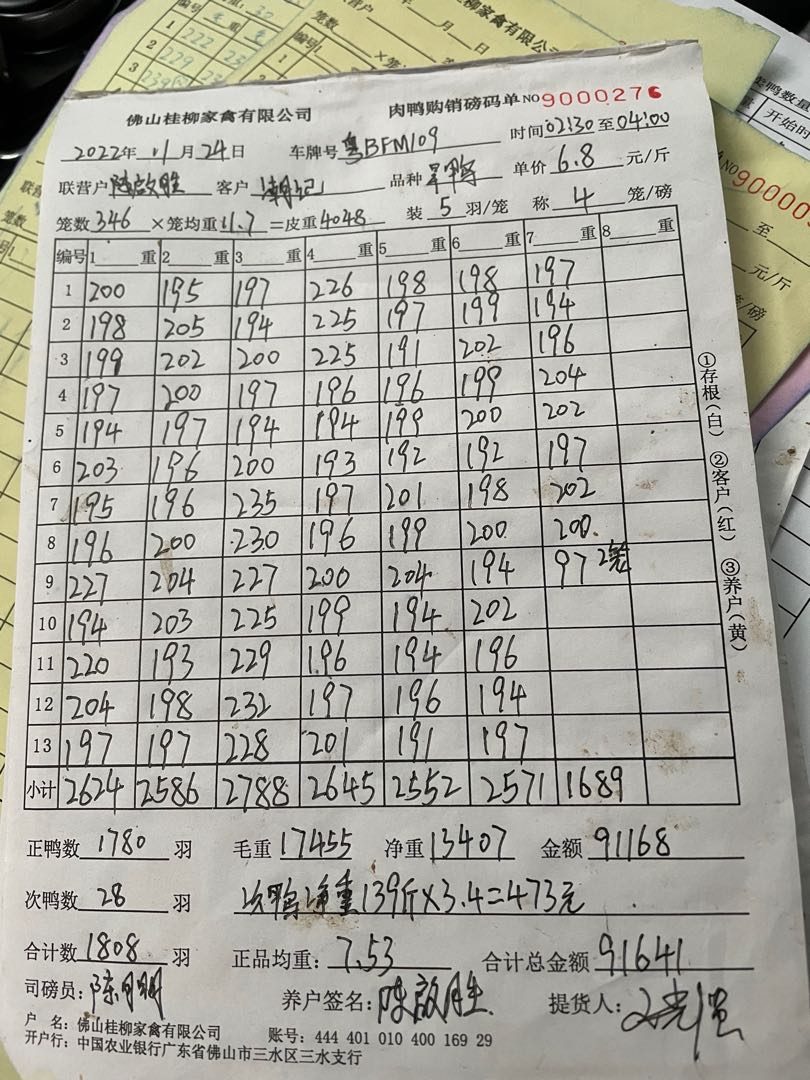 佛山桂柳家禽有限公司 肉鸭购销磅码单 NO 9000276
2022年 11月 24日 车牌号 粤BFM109 时间 02:30 至 04:00
联营户 陈啟胜 客户 潮记 品种 单价 6.8 元/斤
笼数 346 ×笼均重 11.7 =皮重 4048 装 5 羽/笼 称 4 笼/磅
编号 1 重 2 重 3 重 4 重 5 重 6 重 7 重 8 重
1 200 195 197 226 198 198 197
2 198 205 194 225 197 199 194
3 199 202 200 225 191 202 196
4 197 200 197 196 196 199 204
5 194 197 194 194 199 200 202
6 203 196 200 193 192 192 197
7 195 196 235 197 201 198 202
8 196 200 230 196 199 200 200
9 227 204 227 200 204 194 97 2笼
10 194 203 225 199 194 202
11 220 193 229 196 194 196
12 204 198 232 197 196 194
13 197 197 228 201 191 197
小计 2624 2586 2788 2645 2552 2571 1689
正鸭数 1780 羽 毛重 17455 净重 13407 金额 91168
次鸭数 28 羽 次鸭净重139斤×3.4=473元
合计数 1808 羽 正品均重: 7.53 合计总金额 91641
司磅员: 陈月明 养户签名: 陈啟胜 提货人:
户 名: 佛山桂柳家禽有限公司 账号: 444 401 010 400 169 29
开户行: 中国农业银行广东省佛山市三水区三水支行
①存根(白) ②客户(红) ③养户(黄)